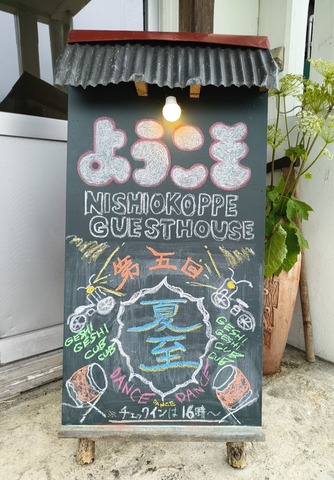 ようこそ
NISHIOKOPPE
GUESTHOUSE
第五回
夏至
GESHI
GESHI
CUB
CUB
GESHI
GESHI
CUB
CUB
DANCE DANCE DANCE
※チェックインは16時〜